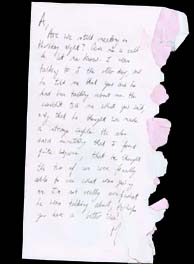 A,
Are we still meeting on
Thursday night? Give me a call
to let me know. I was
talking to J the other day and
he told me that you and he
had been talking about me. He
wouldn't tell me what you said,
only that he thought we made
a strong couple. He also
said something that I found
quite
that he thought
the two of we were finally
able to see what was going
on. I'm not really sure what
he was talking about. Perhaps
you have a better idea?
M